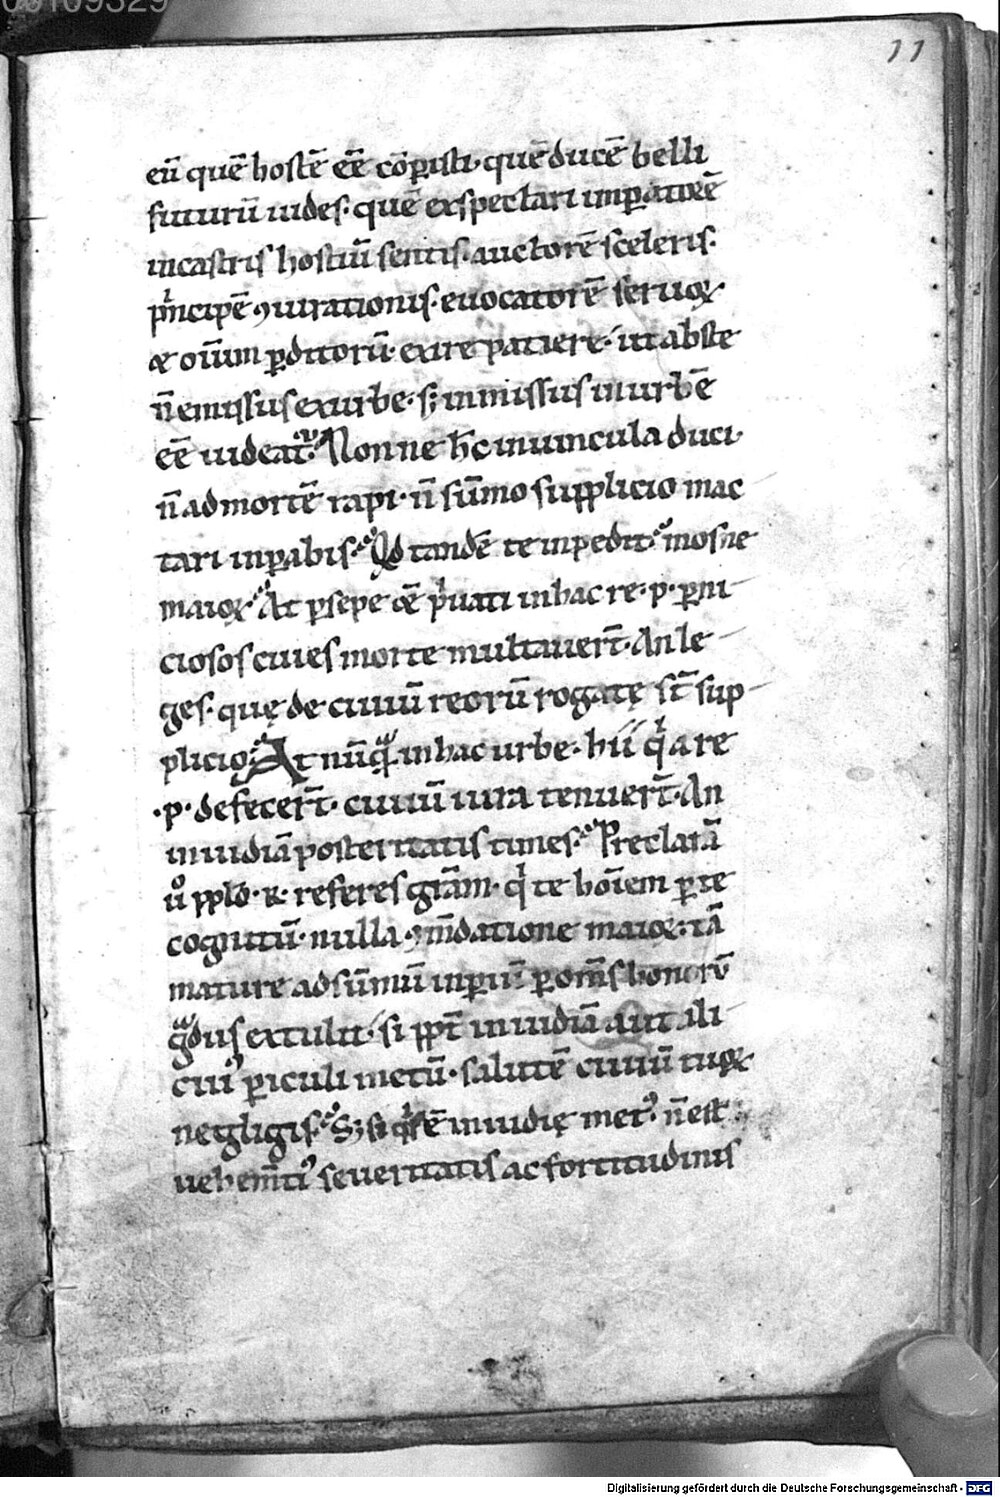 11
eū quē hostē eē cōpisti· quē ducē belli
futurū uides· quē exspectari imꝑatorē
incastris hostiū sentis· auctorē sceleris·
pⁱncipē ꝯiurationis· euocatorē seruoꝝ·
& oīum ꝑditorū· exire patiere· ut abs te
n̄ emissus ex urbe· sꝫ inmissus in urbē
eē uideat᷑· Nonne hc̄ in uincula duci·
n̄ ad mortē rapi· n̄ sūmo supplicio mac
tari inꝑabis· Qd tandē te inpedit· mos ne
maioꝝ· At ꝑsepe &ē pⁱuati in hac re· p· ꝑni
ciosos ciues morte multauer̄t· An le
ges· quę de ciuiū reorū rogatę st̄ sup
plicio· At nūqᵃ in hac urbe· hii qⁱ a re
·p· defecer̄t· ciuiū iura tenuer̄t· An
inuidiā posteritatis times· Preclarā
uͦ pplo· R· referes grām· qⁱ te hōiem ꝑ te
cognitū· nulla ꝯm̄datione maioꝝ· tā
mature ad sūmū inꝑiū ꝑ om̄s honorū
gᵃdus extulit· si ppt̄ inuidiā aut ali
cuiꝰ ꝑiculi metū· salutē ciuiū tuoꝝ
negligis· Sꝫ si qⁱs ē inuidię metꝰ· n̄ est
uehem̄tiꝰ seueritatis ac fortitudinis
Digitalisierung gefördert durch die Deutsche Forschungsgemeinschaft - DFG